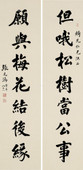 但哦松樹當公事
願與梅花結後緣
張元濟